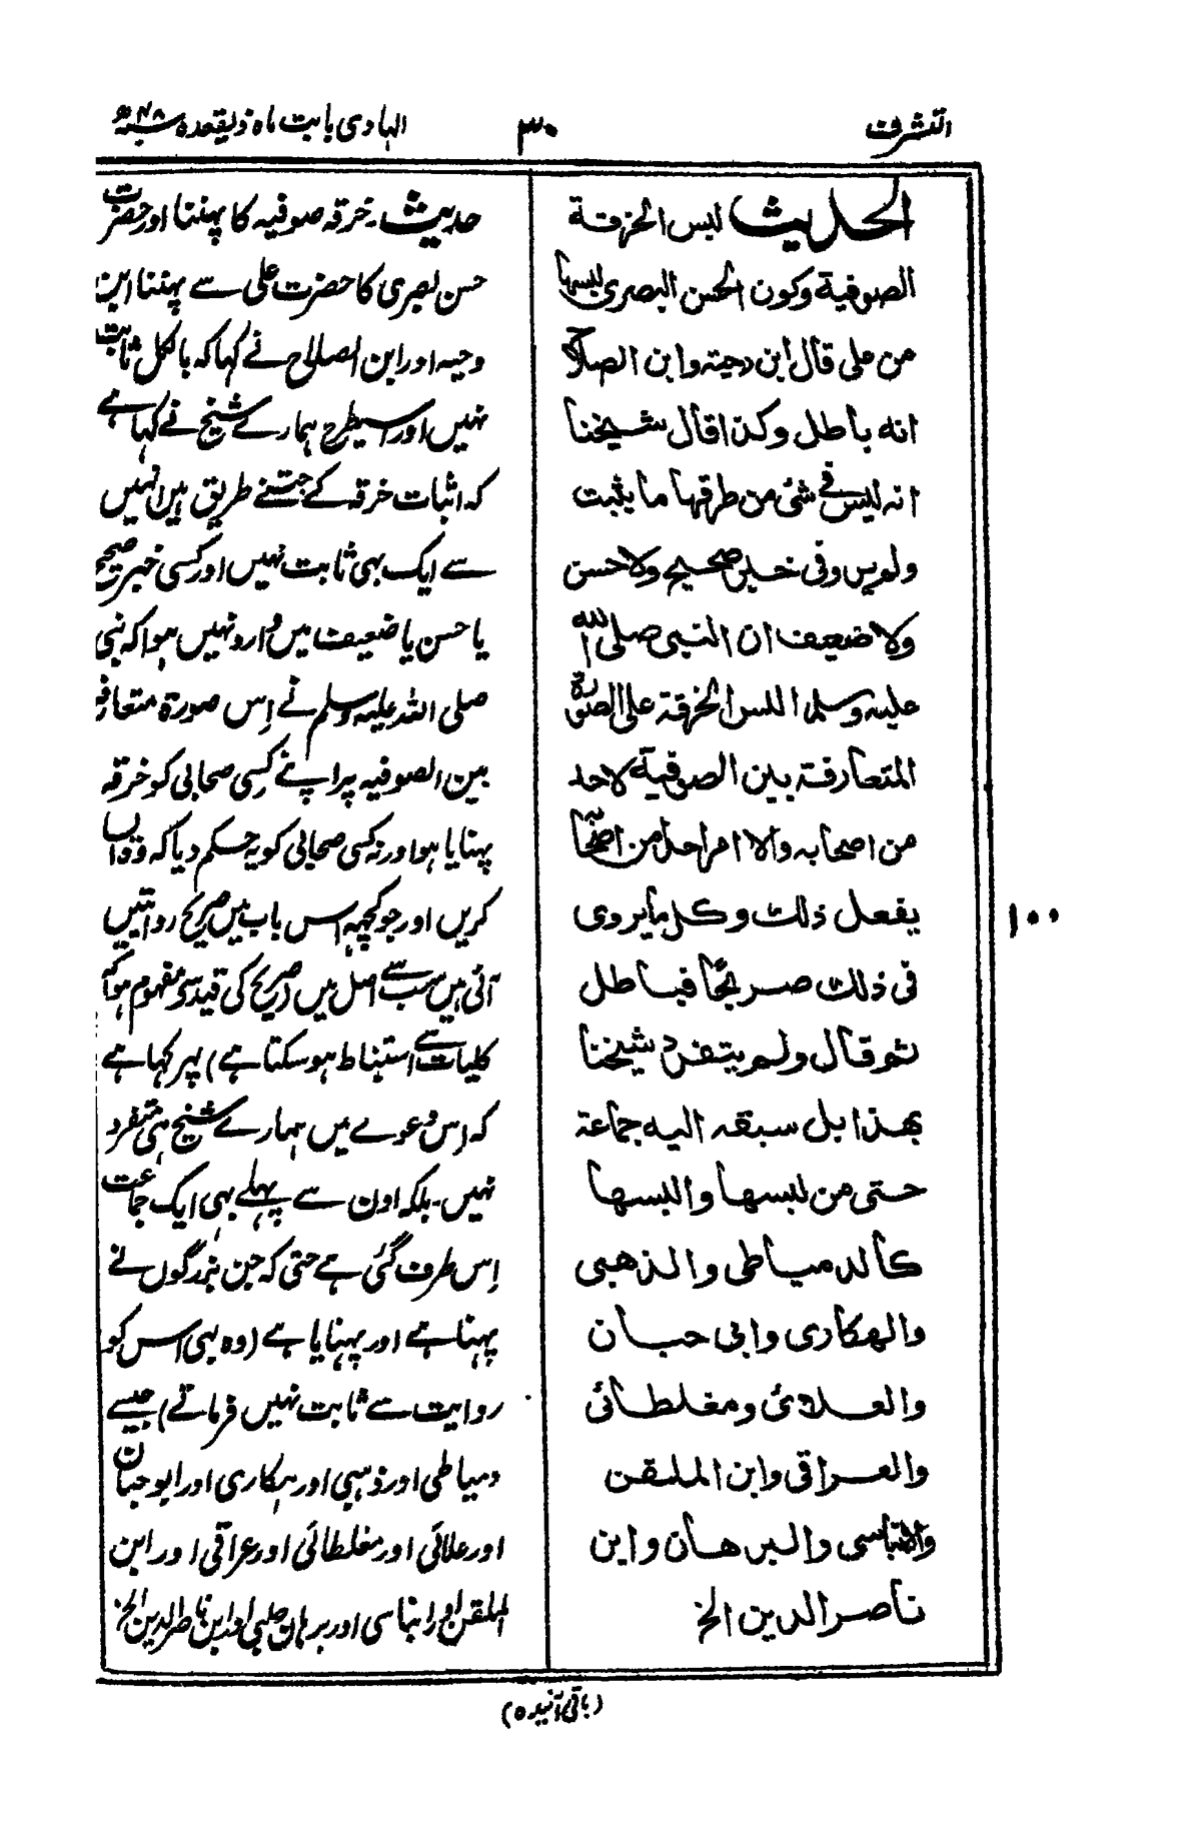 التشرف
۳۰
الہادی بابت ماہ ذیقعدہ
الحدیث لبس الخرقة
الصوفية وكون الحسن البصرى لبسها
من على قال ابن دحية وابن الصلاح
انه باطل وكذا قال شيخنا
انه ليس فى شئ من طرقها ما يثبت
ولم يرد فى خبر صحيح ولا حسن
ولا ضعيف ان النبى صلى الله
عليه وسلم البس الخرقة على الصورة
المتعارفة بين الصوفية لاحد
من اصحابه ولا امر احدا من اصحابه
يفعل ذلك وكل ما يروى
فى ذلك صريحًا فباطل
ثم قال ولم يتفرد شيخنا
بهذا بل سبقه اليه جماعة
حتى من لبسها والبسها
كالدمياطى والذهبى
والهكارى وابى حبان
والعلائى ومغلطائى
والعراقى وابن الملقن
والابناسى والبرهان وابن
ناصر الدين الخ
حدیث۔ خرقہ صوفیہ کا پہننا اور حضرت
حسن بصری کا حضرت علی سے پہننا ابن
وحیہ اور ابن الصلاح نے کہا کہ بالکل ثابت
نہیں اور اسیطرح ہمارے شیخ نے کہا ہے
کہ اثبات خرقہ کے جتنے طریق ہیں انہیں
سے ایک بہی ثابت نہیں اور کسی خبر صحیح
یا حسن یا ضعیف میں وارد نہیں ہوا کہ نبی
صلی اللہ علیہ وسلم نے اِس صورۃ متعارفہ
بین الصوفیہ پر اپنے کسِی صحابی کو خرقہ
پہنایا ہو اور نہ کسی صحابی کو یہ حکم دیا کہ وہ ایسا
کریں اور جو کچہہ اس باب میں صریح روائتیں
آئی ہیں سب بے اصل ہیں (صریح کی قید سے مفہوم ہوا کہ
کلیات سے استنباط ہو سکتا ہے) پہر کہا ہے
کہ اِس دعوے میں ہمارے شیخ ہی متفرد
نہیں۔ بلکہ اون سے پہلے بہی ایک جماعت
اِس طرف گئی ہے حتی کہ جن بزرگوں نے
پہنا ہے اور پہنایا ہے (وہ بہی اس کو
روایت سے ثابت نہیں فرماتے) جیسے
دمیاطی اور ذہبی اور ہکاری اور ابو حبان
اور علائی اور مغلطائی اور عراقی اور ابن
الملقن اور ابناسی اور برہان حلبی اور ابن ناصر الدین الخ
۱۰۰
(باقی آئیندہ)